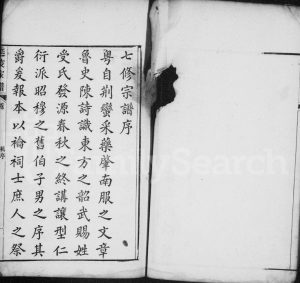 七修宗譜序
粵自荆蠻采藥肇南服之文章
魯史陳詩識東方之韶武賜姓
受氏發源春秋之終講讓型仁
衍派昭穆之舊伯子男之序其
爵爰報本以禴祠士庶人之祭
FamilySearch